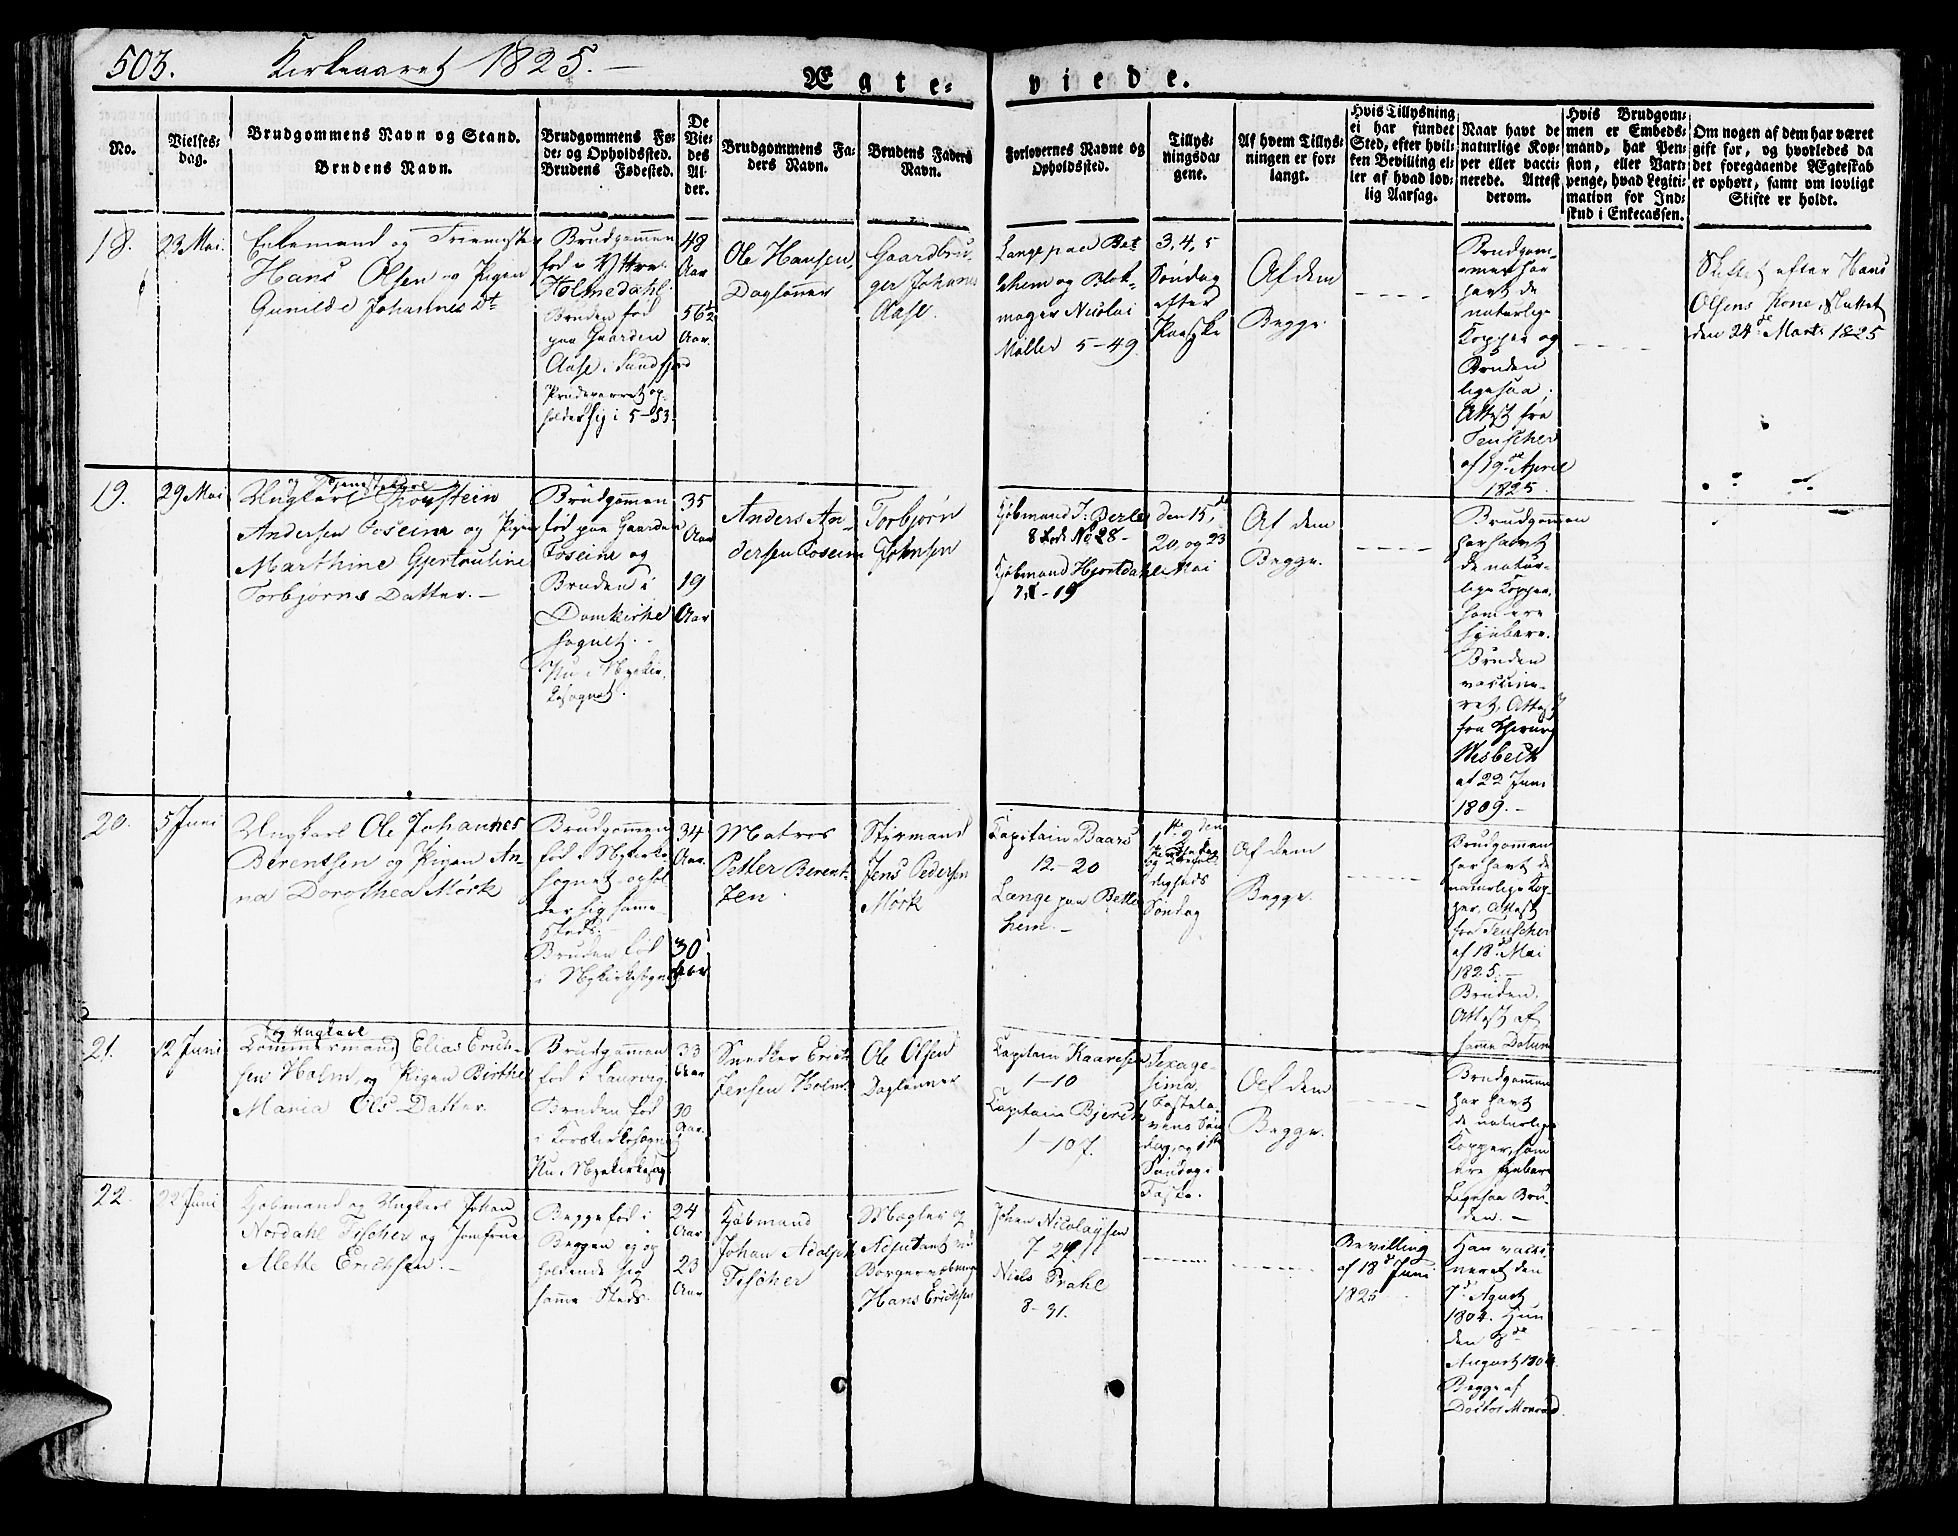 503.
Kirkeaaret 1825.
Ægte-
viede.
No.
Vielses-
dag.
Brudgommens Navn og Stand.
Brudens Navn.
Brudgommens Fø-
de- og Opholdssted.
Brudens Fødested.
De
Vie-
des
Al-
der.
Brudgommens Fa-
ders Navn.
Brudens Faders
Navn.
Forlovernes Navne og
Opholdssted.
Tillys-
ningsda-
gene.
Af hvem Tillys-
ningen er for-
langt.
Hvis Tillysning
ei har fundet
Sted, efter hvil-
ken Bevilling el-
ler af hvad lov-
lig Aarsag.
Naar havt de
naturlige Kop-
per eller vacci-
nerede. Attest
derom.
Hvis Brudgom-
men er Embeds-
mand, har Pen-
sion, eller Vart-
penge, hvad Legiti-
mation for Ind-
skud i Enkecassen.
Om nogen af dem har været
gift før, og hvorledes da
det foregaaende Ægteskab
er ophørt, samt om lovligt
Skifte er holdt.
18.
23 Mai.
Enkemand og
Hans Olsen og Pigen
Gunilde Johannes Dt
Brudgommen
fød i Yttre
Holmedahl
Bruden fød
paa Gaarden
Aase i Sundfjord
holder sig i 5-53.
48
Aar
56½
Aar.
Ole Hansen,
Daglønner
Gaardbru-
ger Johannes
Aase.
Lange paa Bet
lehem og Blok-
mager Nicolai
Møller 5-49.
3, 4, 5
Søndag
efter
Paaske
Af dem
Begge.
Brudgom-
men har
havt de
naturlige
Kopper og
Bruden
ligesaa,
Attest fra
Teuscher
af 19de April
1825.
Skiftet efter Hans
Olsens Kone, sluttet
den 24de Marts 1825
19.
29 Mai
og Tjenestekarl
Ungkarl Thorstein
Andersen Foseine og Pigen
Marthine Gjertruline
Torbjørns Datter.
Brudgommen
fød paa Gaarden
Foseine og
Bruden i
Domkirke
sognet.
Nu i Nyekir-
kesognet.
35
Aar
19
Aar
Anders An-
dersen Foseine
Torbjørn
Johnsen
Kjøbmand J: Berle
8 Rode No 28-
Kjøbmand Hjortdahl
7, - 19
den 15de
20, og 23
Mai
Af dem
Begge.
Brudgommen
har havt
de natur-
lige Kopper,
som ere
synbare.
Bruden
vaccine-
ret, Attest
fra Chirurg
Wesbeck
af 22 Juni
1809.
20.
5 Juni
Ungkarl Ole Johannes
Berentsen og Pigen An-
na Dorothea Mørk
Brudgommen
fød i Nykirke-
sognet ophol-
der sig samme-
steds.
Bruden fød
i Nykirkesognet
34
Aar.
30
Aar
Matros
Petter Berent-
sen
Styrmand
Jens Pedersen
Mørk
Kapitain Baars
12-20
Lange paa Betle
hem.
Søndag
Af dem
Begge.
Brudgommen
har havt de
naturlige Kop-
per, Attest
fra Teuscher
af 18de Mai
1825.
Bruden,
Attest af
samme Datum
21.
12 Juni
og Ungkarl
Tømmermand Elias Erich-
sen Holm, og Pigen Birthe
Maria Ols Datter
Brudgommen
fød i Laurvig.
Bruden fød
i Korskirkesognet
Nu i Nyekirkesog.
33
Aar
30
Aar.
Snedker Erich
Jensen Holm.
Ole Olsen
Daglønner
Kapitain Kaaresen
1-10
Kapitain Bjerck
1-107.
Sexage-
sima,
Fastela-
vens Søn-
dag, og 1ste
Søndag i
Faste.
Af dem
Begge.
Brudgommen
har havt
de naturlige
Kopper, som
ere synbare
Ligesaa Bru-
den.
22.
22 Juni
Kjøbmand og Ungkarl Johan
Nordahl Fischer og Jomfrue
Alette Erichsen.
Begge fød i
Bergen og op
holdende sig
samme Steds.
24
Aar
23
Aar
Kjøbmand
Johan Adolph
Fischer
Mægler og
Adjutant ved
Borgervæbningen
Hans Erichsen
Johan Nicolaysen
7-29
Niels Prahl
8-31.
Bevilling
af 18de Juni
1825
Han vacci-
neret den
7de August
1804. Hun
den 8de
August 1804.
Begge af
Doctor Monrad.